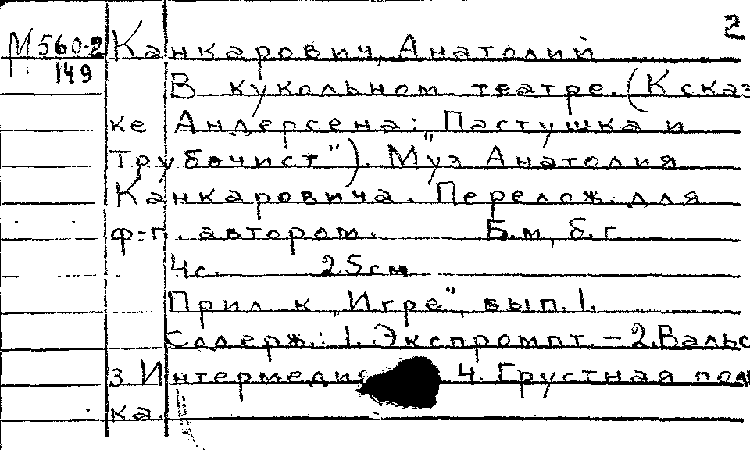 2
М560-2 Канкарович, Анатолий
149
В кукольном театре. (К сказ
ке Андерсена: "Пастушка и
трубочист"). Муз Анатолия
Канкаровича. Перелож. для
ф-п. автором. Б.м, б.г
4с. 25см
Прил к "Игре", вып. 1.
Содерж.: 1. Экспромпт. – 2. Вальс
3 Интермедия 4. Грустная поль
ка.